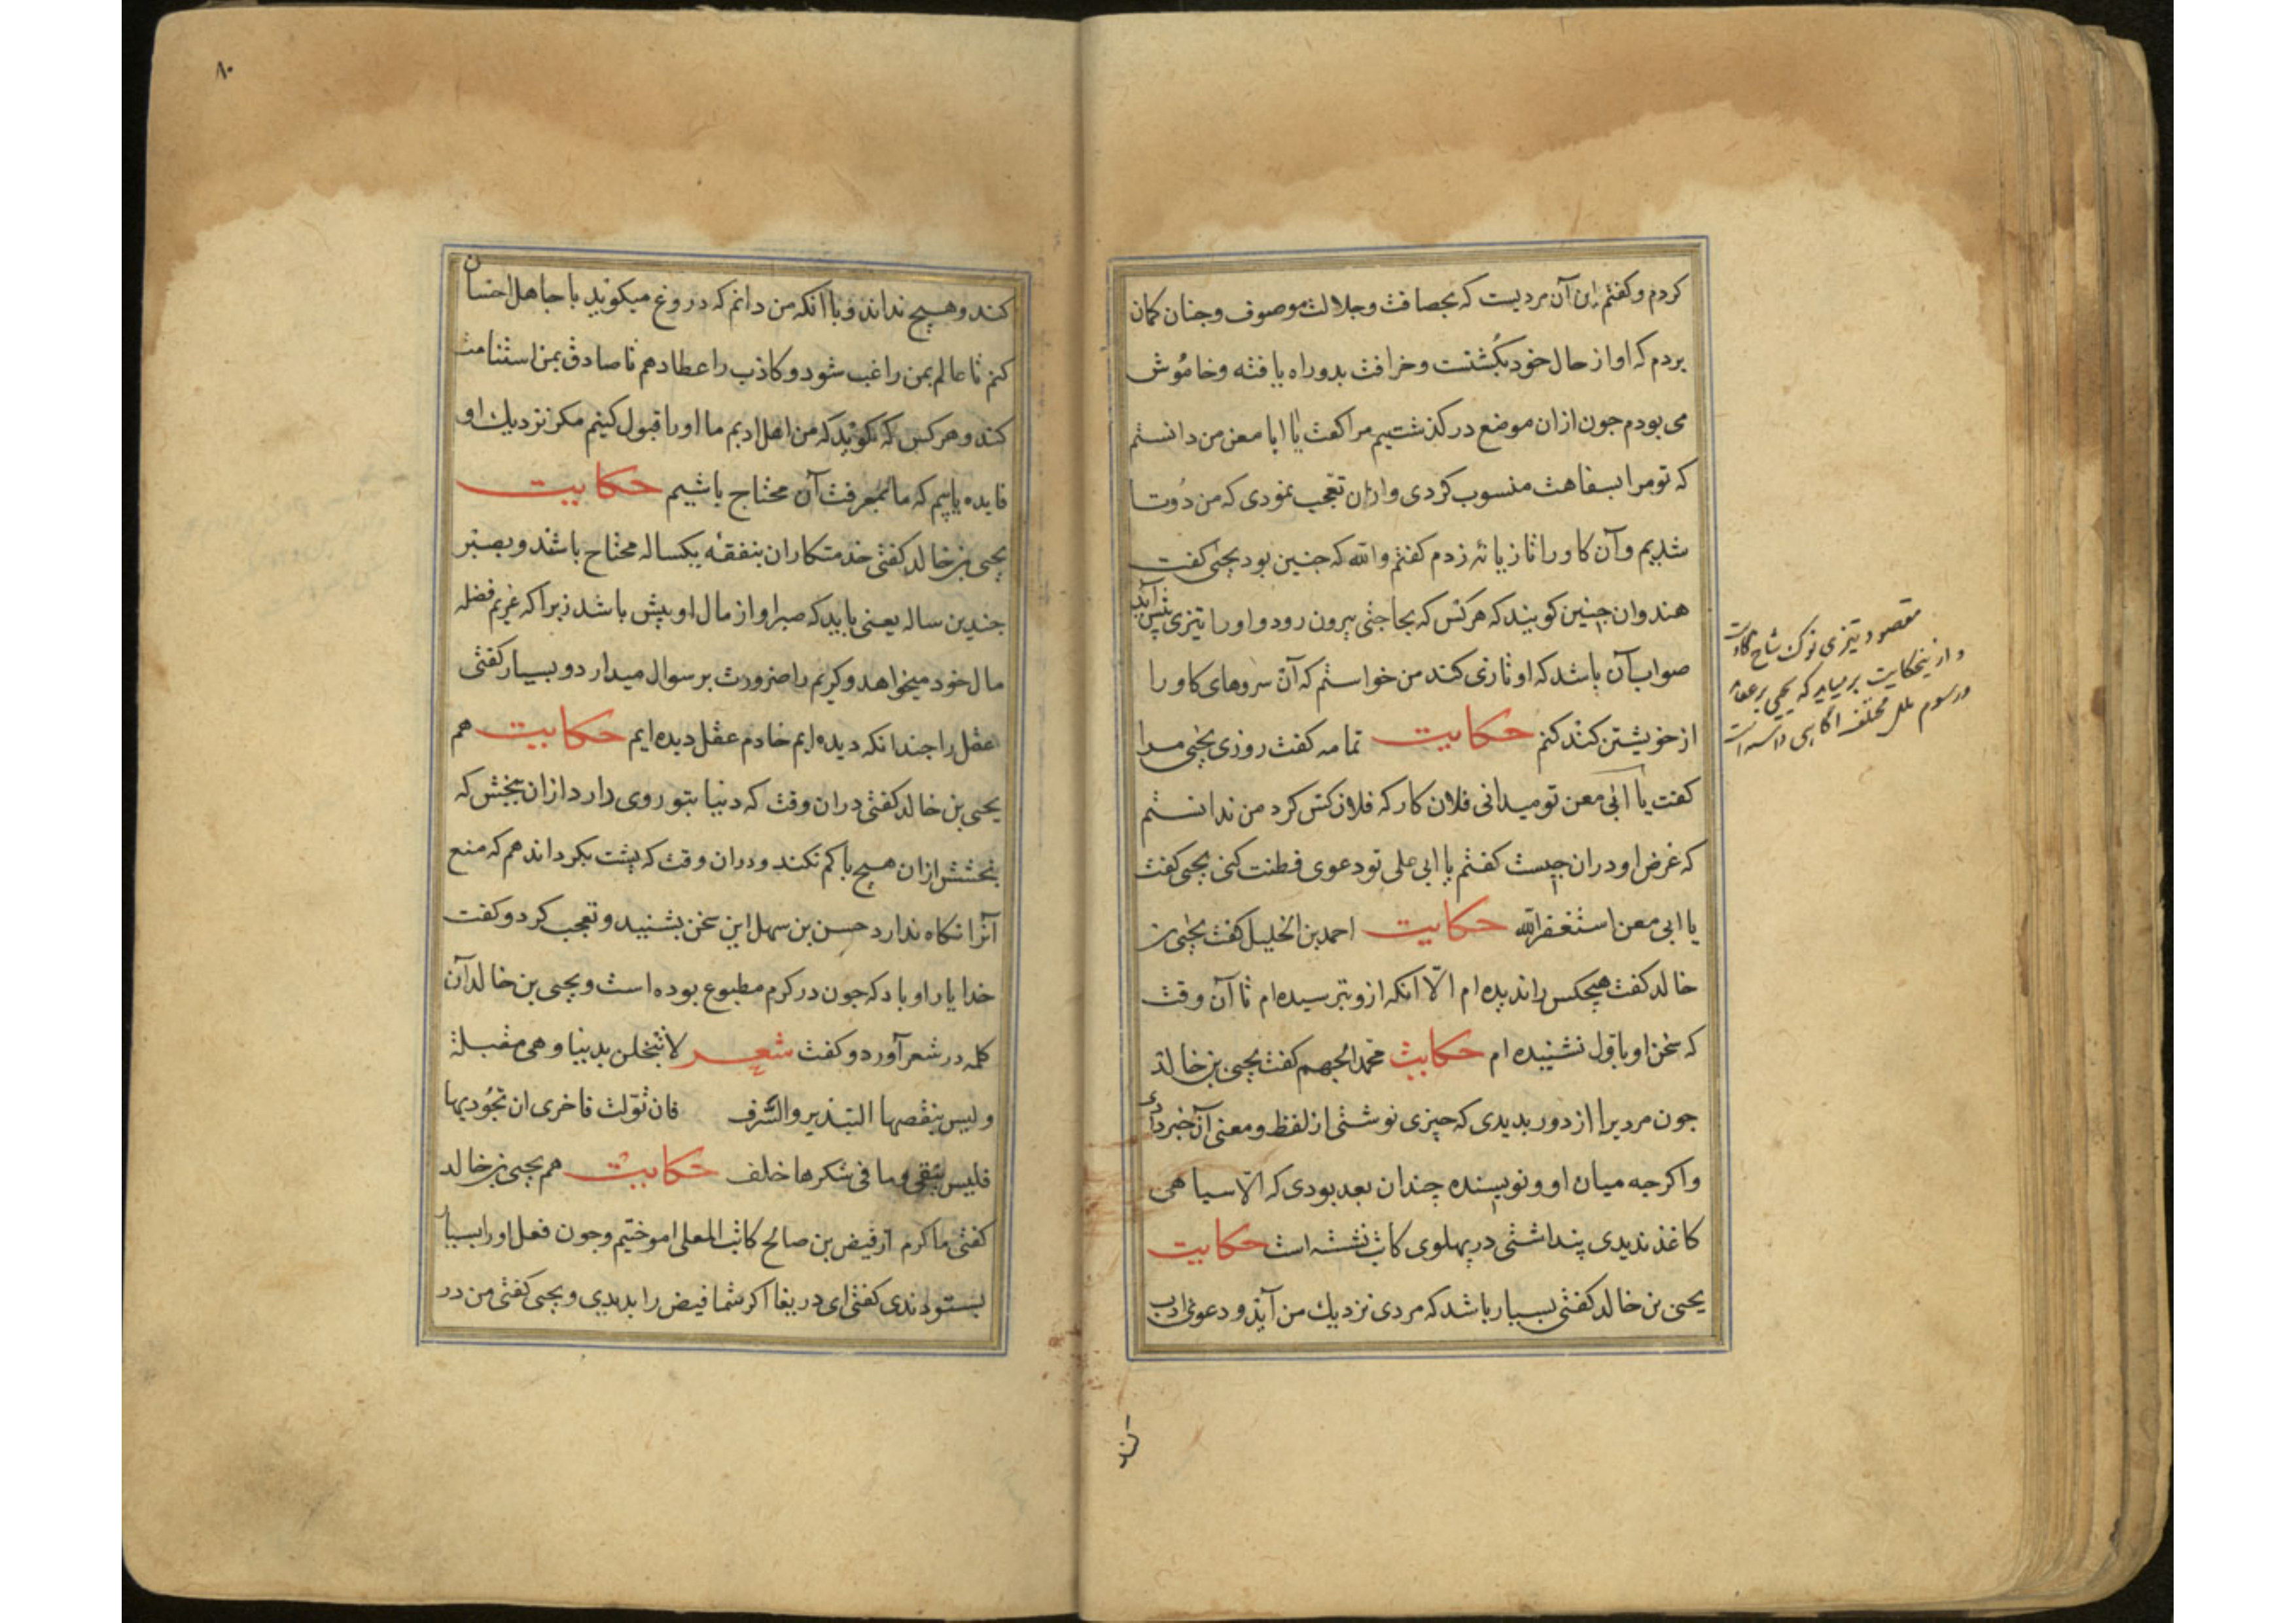 کردم و کفتم این آن مردیست که بحصافت و جلالت موصوف و جنان کمان
بردم که او از حال خود بکشتست و خرافت بدو راه یافته و خاموش
می بودم جون ازان موضع در کذشتیم مرا کفت یا ابا معن من دانستم
که تو مرا بسفاهت منسوب کردی و ازان تعجب نمودی که من دوتا
شدیم و آن کاو را تازیانه زدم کفتم والله که جنین بود یحیی کفت
هندوان چنین کویند که هرکس که بحاجتی بیرون رود و او را تیزی پیش آید
صواب آن باشد که او نازی کند من خواستم که آن سروهای کاو را
از خویشتن کند کنم حکایت ثمامه کفت روزی یحیی مرا
کفت یا ابی معن تو میدانی فلان کار که فلان کس کرد من ندانستم
که غرض او دران چیست کفتم یا ابی علی تو دعوی فطنت کنی یحیی کفت
یا ابی معن استغفرالله حکایت احمد بن الخلیل کفت یحیی بن
خالد کفت هیچکس را ندیده ام الا انکه ازو بترسیده ام تا آن وقت
که سخن او باول نشنیده ام حکایت محمد الجهم کفت یحیی بن خالد
جون مردیرا از دور بدیدی که چیزی نوشتی از لفظ و معنی آن خبر دادی
واکرجه میان او و نویسنده چندان بعد بودی که الا سیاهی
کاغذ ندیدی پنداشتی در پهلوی کاتب نشسته است حکایت
یحیی بن خالد کفتی بسیار باشد که مردی نزدیک من آید و دعوی ادب
مقصود تیزی نوک شاخ کاوست
و ازین حکایت برمیاید که یحیی بر عقاید
و رسوم ملل مختلفه اکاهی داشته است
کند
۸۰
کند و هیچ نداند و با آنکه من دانم که دروغ میکوید با جاهل احسان
کنم تا عالم بمن راغب شود و کاذب را عطا دهم تا صادق بمن استنامت
کند و هرکس که کوید که من اهل ادبم ما او را قبول کنیم مکر نزدیک او
فایده یابیم که ما بمعرفت آن محتاج باشیم حکایت
یحیی بن خالد کفتی خدمتکاران بنفقه یکساله محتاج باشند و بصبر
جندین ساله یعنی باید که صبر او از مال او بیش باشد زیرا که غریم فضله
مال خود میخواهد و کریم را ضرورت بر سوال میدارد و بسیار کفتی
عقل را جندانکه دیده ایم خادم عقل دیده ایم حکایت هم
یحیی بن خالد کفتی دران وقت که دنیا بتو روی دارد ازان ببخش که
بخشش ازان هیچ با کم نکند و دران وقت که پشت بکرداند هم که منع
آنرا نکاه ندارد حسن بن سهل این سخن بشنید و تعجب کرد و کفت
خدا یار او باد که جون در کرم مطبوع بوده است و یحیی بن خالد آن
کلمه در شعر آورد و کفت شعر لا تبخلن بدنیا و هی مقبلة
و لیس ینقصها التبذیر و السرف فان تولت فاحری ان تجود بها
فلیس تبقی و ما فی شکرها خلف حکایت هم یحیی بن خالد
کفتی ما کرم از فیض بن صالح کاتب المعلی اموختیم و جون فعل او را بسیار
بستودندی کفتی ای دریغا اکر شما فیض را بدیدی و یحیی کفتی من در